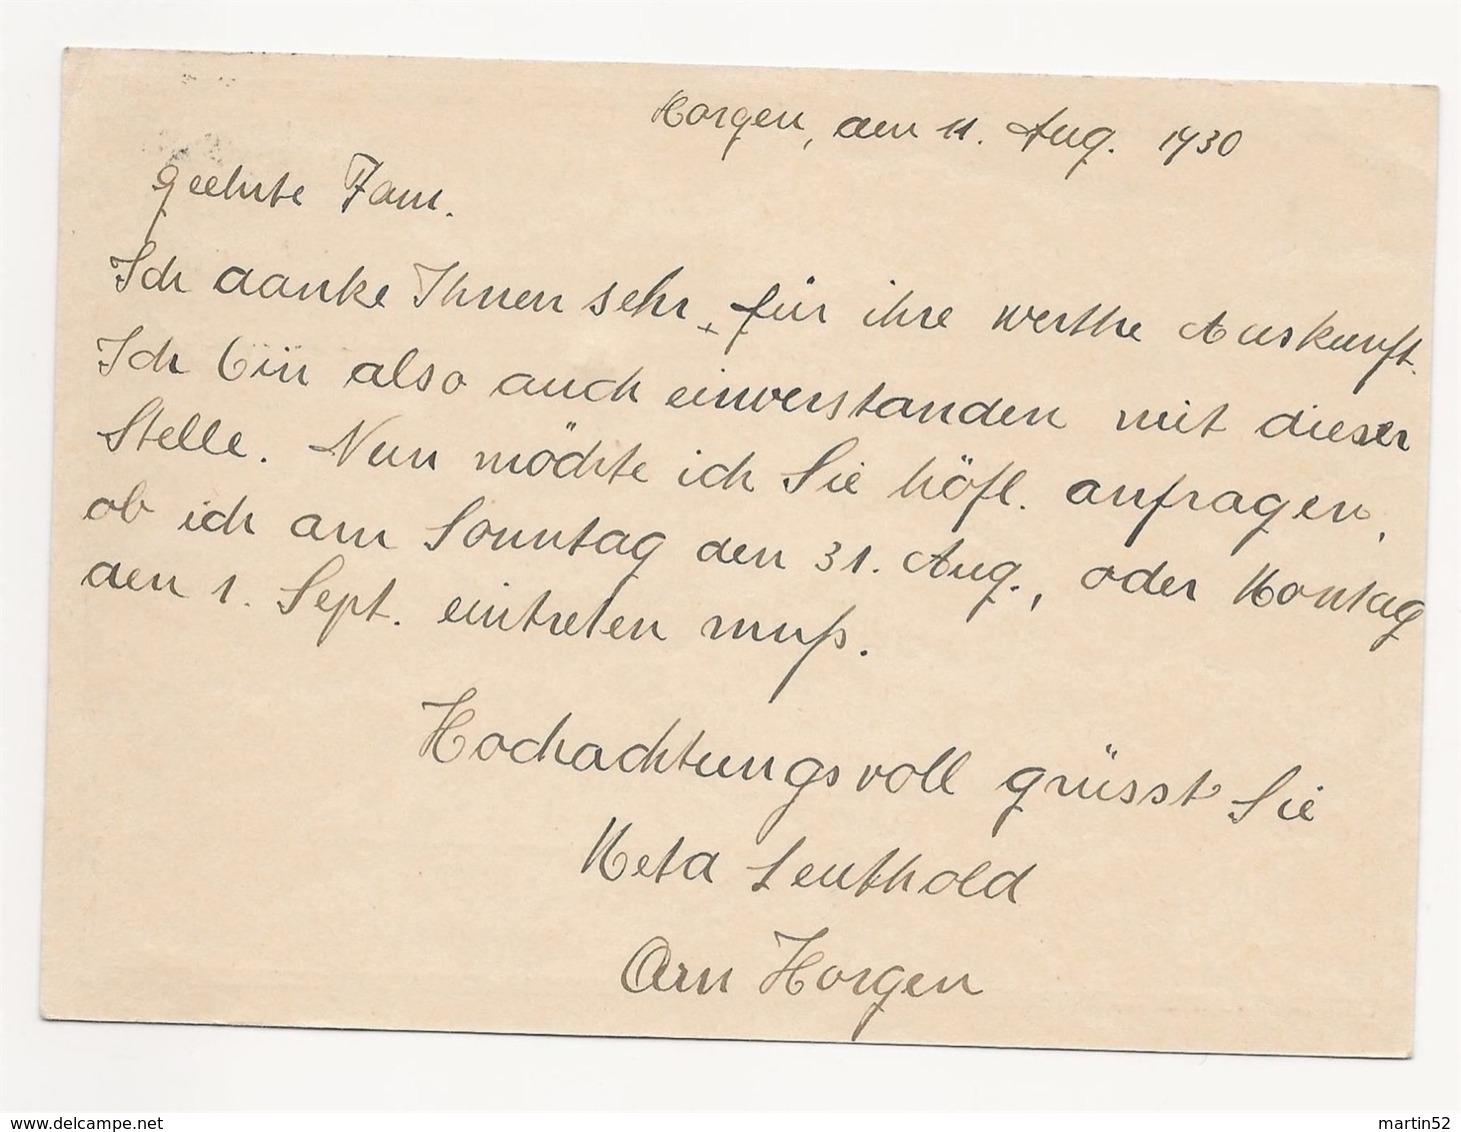 Horgen, den 11. Aug. 1930
geehrte Fam.
Ich danke Ihnen sehr, für ihre werthe Auskunft.
Ich bin also auch einverstanden mit dieser
Stelle. Nun möchte ich Sie höfl. anfragen,
ob ich am Sonntag den 31. Aug., oder Montag
den 1. Sept. eintreten muß.
Hochachtungsvoll grüsst Sie
Meta Leuthold
Arn Horgen
www.delcampe.net
martin52